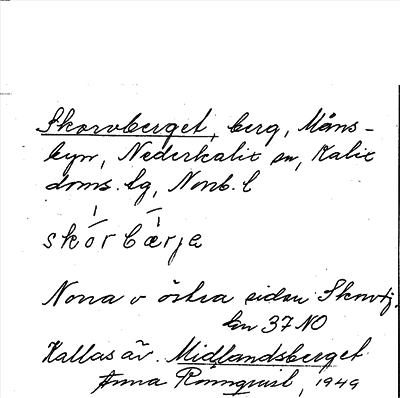 Skorvberget, berg, Måns-
byn, Nederkalix sn, Kalix
doms. lg, Norrb. l
skórbærja
Norra o östra sidan Skorvtj.
kn 37 NO
Kallas äv. Midlandsberget
Anna Rönnqvist, 1949